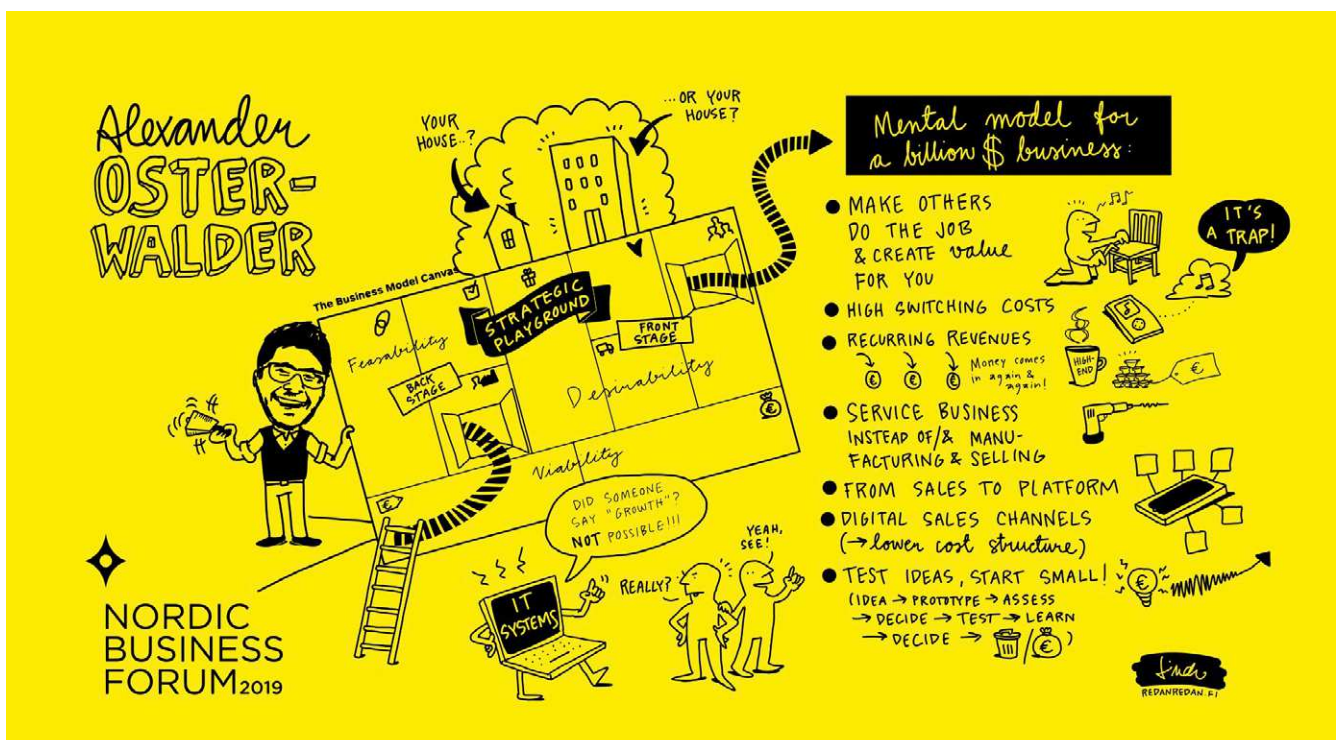 Alexander
OSTER-
WALDER
YOUR
HOUSE..?
...OR YOUR
HOUSE?
The Business Model Canvas
STRATEGIC
PLAYGROUND
Feasability
BACK
STAGE
FRONT
STAGE
Desirability
Viability
€
DID SOMEONE
SAY "GROWTH"?
NOT POSSIBLE!!!
IT
SYSTEMS
REALLY?
YEAH,
SEE!
NORDIC
BUSINESS
FORUM2019
Mental model for
a billion $ business:
● MAKE OTHERS
DO THE JOB
& CREATE value
FOR YOU
IT'S
A TRAP!
● HIGH SWITCHING COSTS
● RECURRING REVENUES
€ € €
Money comes
in again &
again!
HIGH-
END
€
● SERVICE BUSINESS
INSTEAD OF/& MANU-
FACTURING & SELLING
● FROM SALES TO PLATFORM
● DIGITAL SALES CHANNELS
(→ lower cost structure)
● TEST IDEAS, START SMALL!
(IDEA → PROTOTYPE → ASSESS
→ DECIDE → TEST → LEARN
→ DECIDE → / €)
€
REDANREDAN.FI